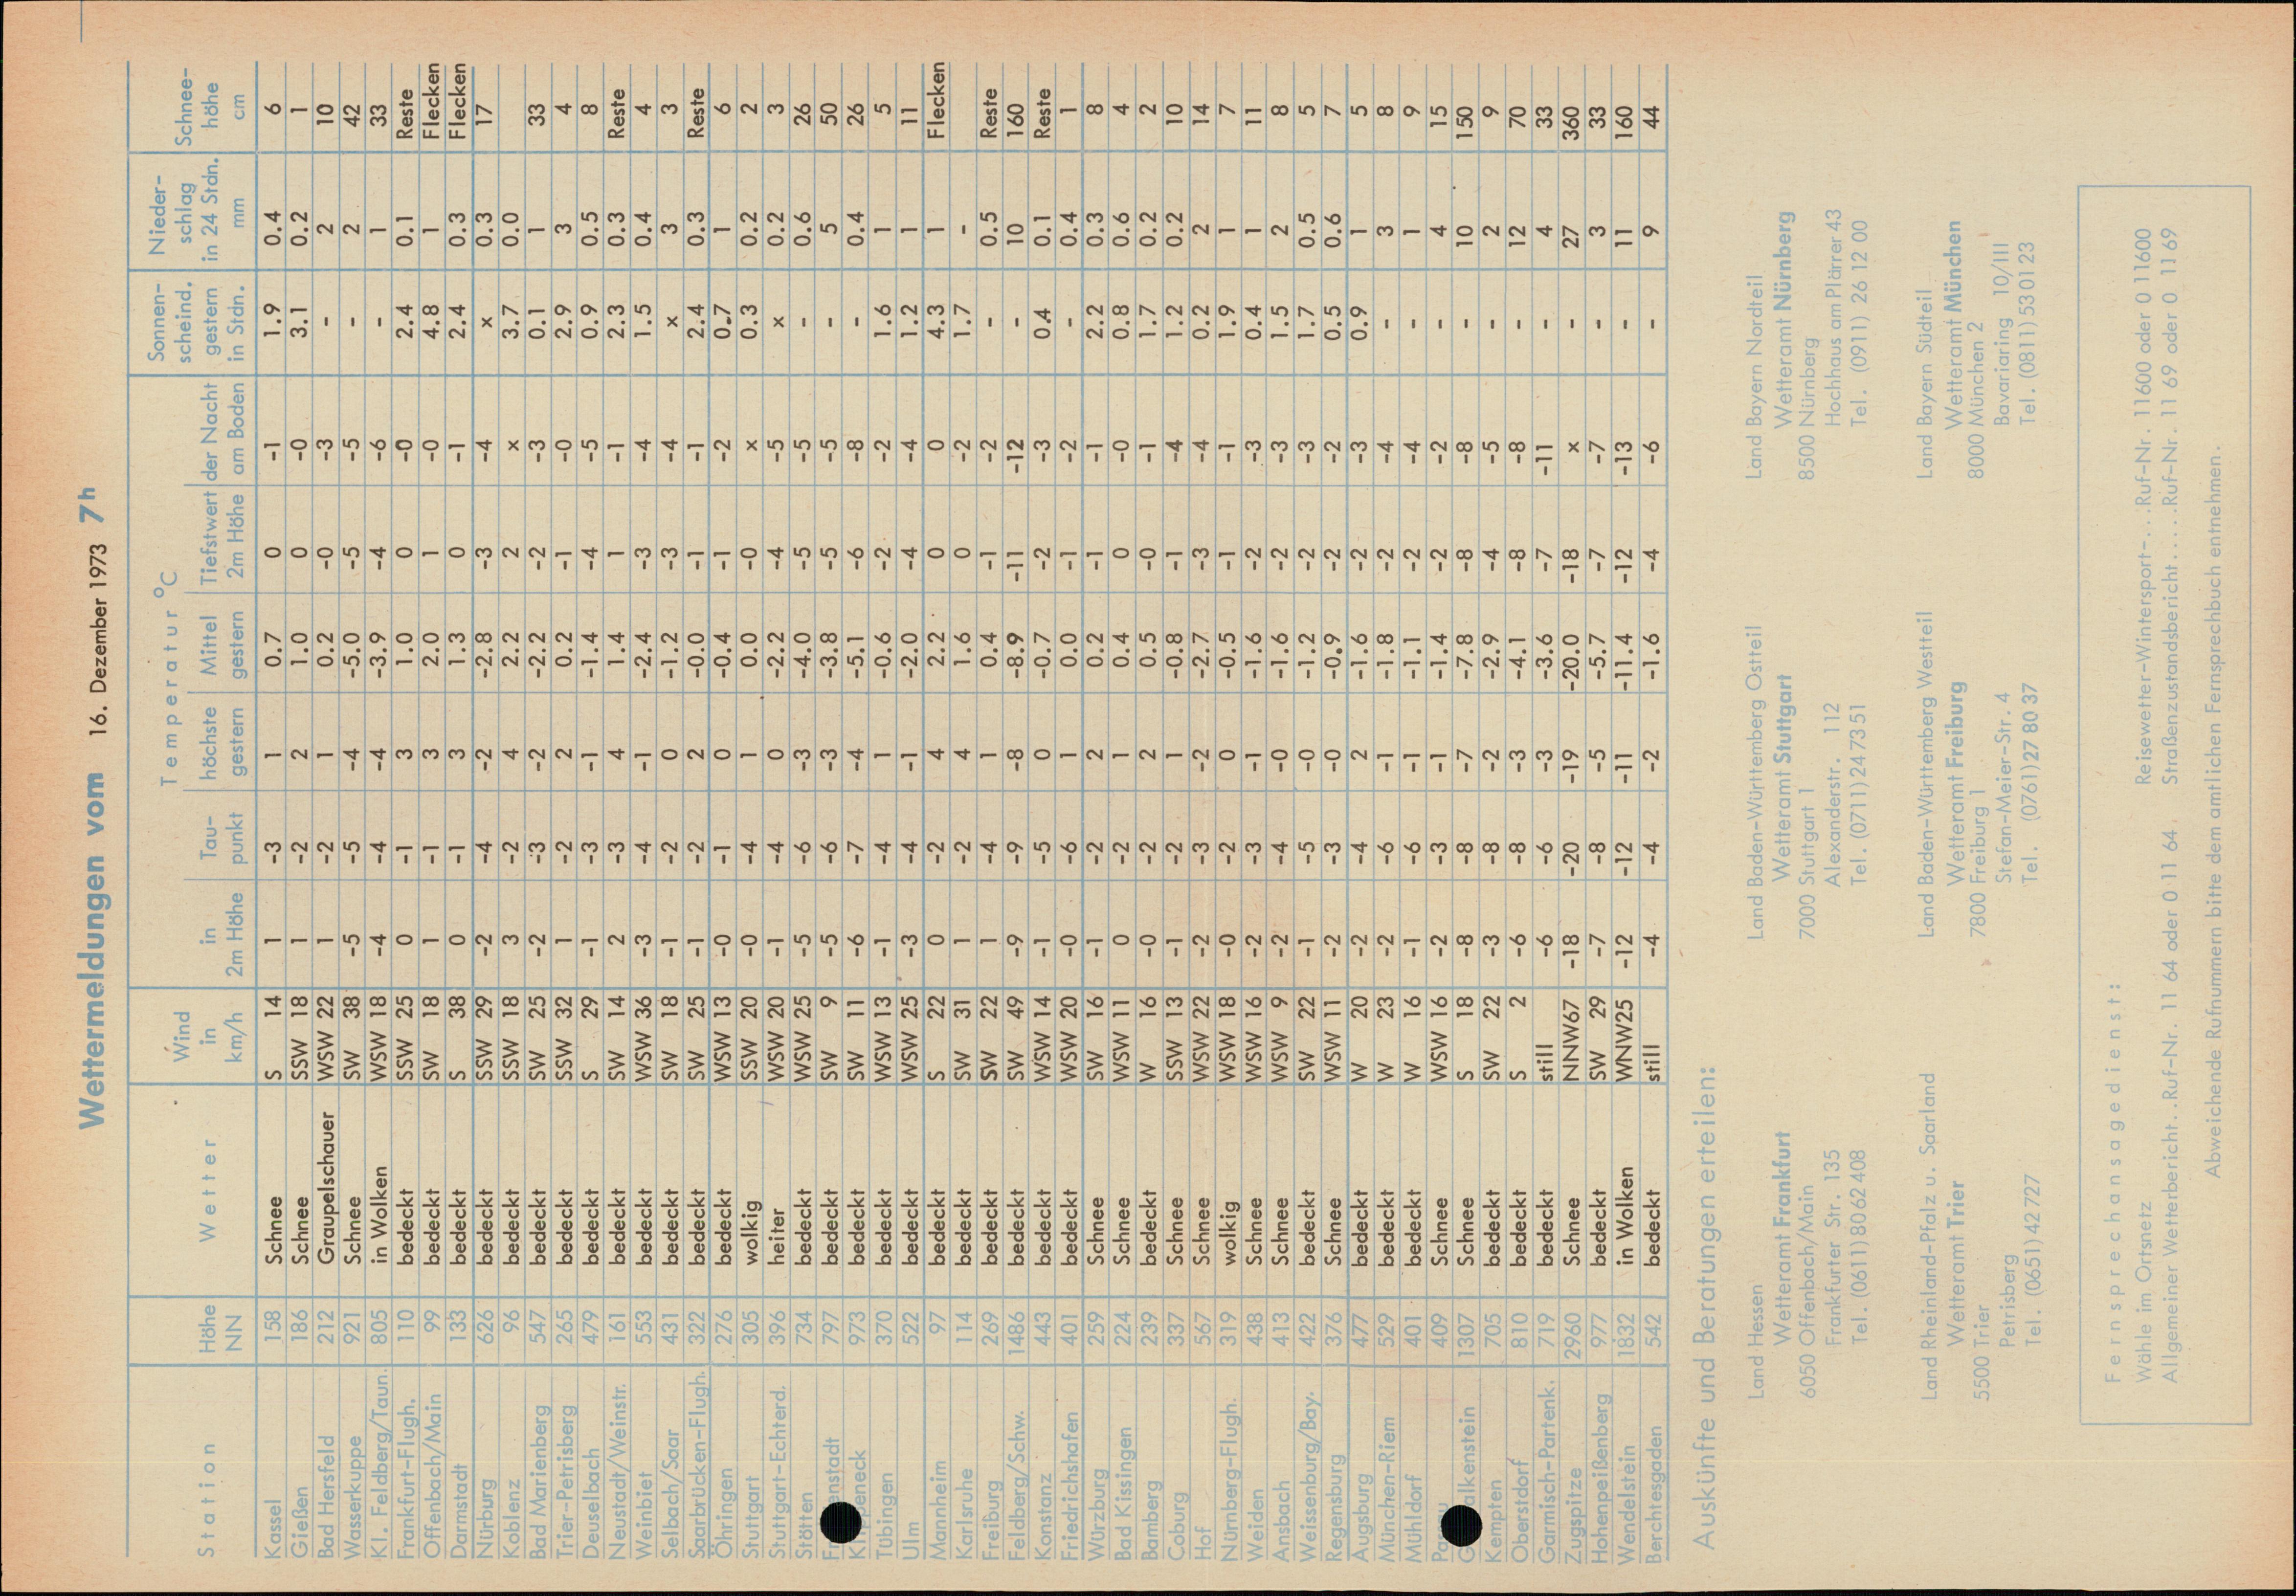 Wettermeldungen vom 16. Dezember 1973 7h
Station Höhe NN Wetter Wind in km/h Temperatur °C in 2m Höhe Tau-punkt höchste gestern Mittel gestern Tiefstwert der Nacht 2m Höhe am Boden Sonnen-scheind. gestern in Stdn. Nieder-schlag in 24 Stdn. mm Schnee-höhe cm
Kassel 158 Schnee S 14 1 -3 1 0.7 0 -1 1.9 0.4 6
Gießen 186 Schnee SSW 18 1 -2 2 1.0 0 -0 3.1 0.2 1
Bad Hersfeld 212 Graupelschauer WSW 22 1 -2 1 0.2 -0 -3 - 2 10
Wasserkuppe 921 Schnee SW 38 -5 -5 -4 -5.0 -5 -5 - 2 42
Kl. Feldberg/Taun. 805 in Wolken WSW 18 -4 -4 -4 -3.9 -4 -6 - 1 33
Frankfurt-Flugh. 110 bedeckt SSW 25 0 -1 3 1.0 0 -0 2.4 0.1 Reste
Offenbach/Main 99 bedeckt SW 18 1 -1 3 2.0 1 -0 4.8 1 Flecken
Darmstadt 133 bedeckt S 38 0 -1 3 1.3 0 -1 2.4 0.3 Flecken
Nürburg 626 bedeckt SSW 29 -2 -4 -2 -2.8 -3 -4 x 0.3 17
Koblenz 96 bedeckt SSW 18 3 -2 4 2.2 2 x 3.7 0.0
Bad Marienberg 547 bedeckt SW 25 -2 -3 -2 -2.2 -2 -3 0.1 1 33
Trier-Petrisberg 265 bedeckt SSW 32 1 -2 2 0.2 -1 -0 2.9 3 4
Deuselbach 479 bedeckt S 29 -1 -3 -1 -1.4 -4 -5 0.9 0.5 8
Neustadt/Weinstr. 161 bedeckt SW 14 2 -3 4 1.4 1 -1 2.3 0.3 Reste
Weinbiet 553 bedeckt WSW 36 -3 -4 -1 -2.4 -3 -4 1.5 0.4 4
Selbach/Saar 431 bedeckt SW 18 -1 -2 0 -1.2 -3 -4 x 3 3
Saarbrücken-Flugh. 322 bedeckt SW 25 -1 -2 2 -0.0 -1 -1 2.4 0.3 Reste
Öhringen 276 bedeckt WSW 13 -0 -1 0 -0.4 -1 -2 0.7 1 6
Stuttgart 305 wolkig SSW 20 -0 -4 1 0.0 -0 x 0.3 0.2 2
Stuttgart-Echterd. 396 heiter WSW 20 -1 -4 0 -2.2 -4 -5 x 0.2 3
Stötten 734 bedeckt WSW 25 -5 -6 -3 -4.0 -5 -5 - 0.6 26
797 bedeckt SW 9 -5 -6 -3 -3.8 -5 -5 - 5 50
973 bedeckt SW 11 -6 -7 -4 -5.1 -6 -8 - 0.4 26
Tübingen 370 bedeckt WSW 13 -1 -4 1 -0.6 -2 -2 1.6 1 5
Ulm 522 bedeckt WSW 25 -3 -4 -1 -2.0 -4 -4 1.2 1 11
Mannheim 97 bedeckt S 22 0 -2 4 2.2 0 0 4.3 1 Flecken
Karlsruhe 114 bedeckt SW 31 1 -2 4 1.6 0 -2 1.7 -
Freiburg 269 bedeckt SW 22 1 -4 1 0.4 -1 -2 - 0.5 Reste
Feldberg/Schw. 1486 bedeckt SW 49 -9 -9 -8 -8.9 -11 -12 - 10 160
Konstanz 443 bedeckt WSW 14 -1 -5 0 -0.7 -2 -3 0.4 0.1 Reste
Friedrichshafen 401 bedeckt WSW 20 -0 -6 1 0.0 -1 -2 - 0.4 1
Würzburg 259 Schnee SW 16 -1 -2 2 0.2 -1 -1 2.2 0.3 8
Bad Kissingen 224 Schnee WSW 11 0 -2 1 0.4 0 -0 0.8 0.6 4
Bamberg 239 bedeckt W 16 -0 -2 2 0.5 -0 -1 1.7 0.2 2
Coburg 337 Schnee SSW 13 -1 -2 1 -0.8 -1 -4 1.2 0.2 10
Hof 567 Schnee WSW 22 -2 -3 -2 -2.7 -3 -4 0.2 2 14
Nürnberg-Flugh. 319 wolkig WSW 18 -0 -2 0 -0.5 -1 -1 1.9 1 7
Weiden 438 Schnee WSW 16 -2 -3 -1 -1.6 -2 -3 0.4 1 11
Ansbach 413 Schnee WSW 9 -2 -4 -0 -1.6 -2 -3 1.5 2 8
Weissenburg/Bay. 422 bedeckt SW 22 -1 -5 -0 -1.2 -2 -3 1.7 0.5 5
Regensburg 376 Schnee WSW 11 -2 -3 -0 -0.9 -2 -2 0.5 0.6 7
Augsburg 477 bedeckt W 20 -2 -4 2 -1.6 -2 -3 0.9 1 5
München-Riem 529 bedeckt W 23 -2 -6 -1 -1.8 -2 -4 - 3 8
Mühldorf 401 bedeckt W 16 -1 -6 -1 -1.1 -2 -4 - 1 9
409 Schnee WSW 16 -2 -3 -1 -1.4 -2 -2 - 4 15
1307 Schnee S 18 -8 -8 -7 -7.8 -8 -8 - 10 150
Kempten 705 bedeckt SW 22 -3 -8 -2 -2.9 -4 -5 - 2 9
Oberstdorf 810 bedeckt S 2 -6 -8 -3 -4.1 -8 -8 - 12 70
Garmisch-Partenk. 719 bedeckt still -6 -6 -3 -3.6 -7 -11 - 4 33
Zugspitze 2960 Schnee NNW67 -18 -20 -19 -20.0 -18 x - 27 360
Hohenpeißenberg 977 bedeckt SW 29 -7 -8 -5 -5.7 -7 -7 - 3 33
Wendelstein 1832 in Wolken WNW25 -12 -12 -11 -11.4 -12 -13 - 11 160
Berchtesgaden 542 bedeckt still -4 -4 -2 -1.6 -4 -6 - 9 44
Auskünfte und Beratungen erteilen:
Land Hessen
Wetteramt Frankfurt
6050 Offenbach/Main
Frankfurter Str. 135
Tel. (0611) 8062408
Land Baden-Württemberg Ostteil
Wetteramt Stuttgart
7000 Stuttgart 1
Alexanderstr. 112
Tel. (0711) 247351
Land Bayern Nordteil
Wetteramt Nürnberg
8500 Nürnberg
Hochhaus am Plärrer 43
Tel. (0911) 26 12 00
Land Rheinland-Pfalz u. Saarland
Wetteramt Trier
5500 Trier
Petrisberg
Tel. (0651) 42727
Land Baden-Württemberg Westteil
Wetteramt Freiburg
7800 Freiburg 1
Stefan-Meier-Str. 4
Tel. (0761) 27 80 37
Land Bayern Südteil
Wetteramt München
8000 München 2
Bavariaring 10/III
Tel. (0811) 530123
Fernsprechansagedienst:
Wähle im Ortsnetz Reisewetter-Wintersport-...Ruf-Nr. 11600 oder 0 11600
Allgemeiner Wetterbericht..Ruf-Nr. 11 64 oder 0 11 64 Straßenzustandsbericht....Ruf-Nr. 11 69 oder 0 11 69
Abweichende Rufnummern bitte dem amtlichen Fernsprechbuch entnehmen.